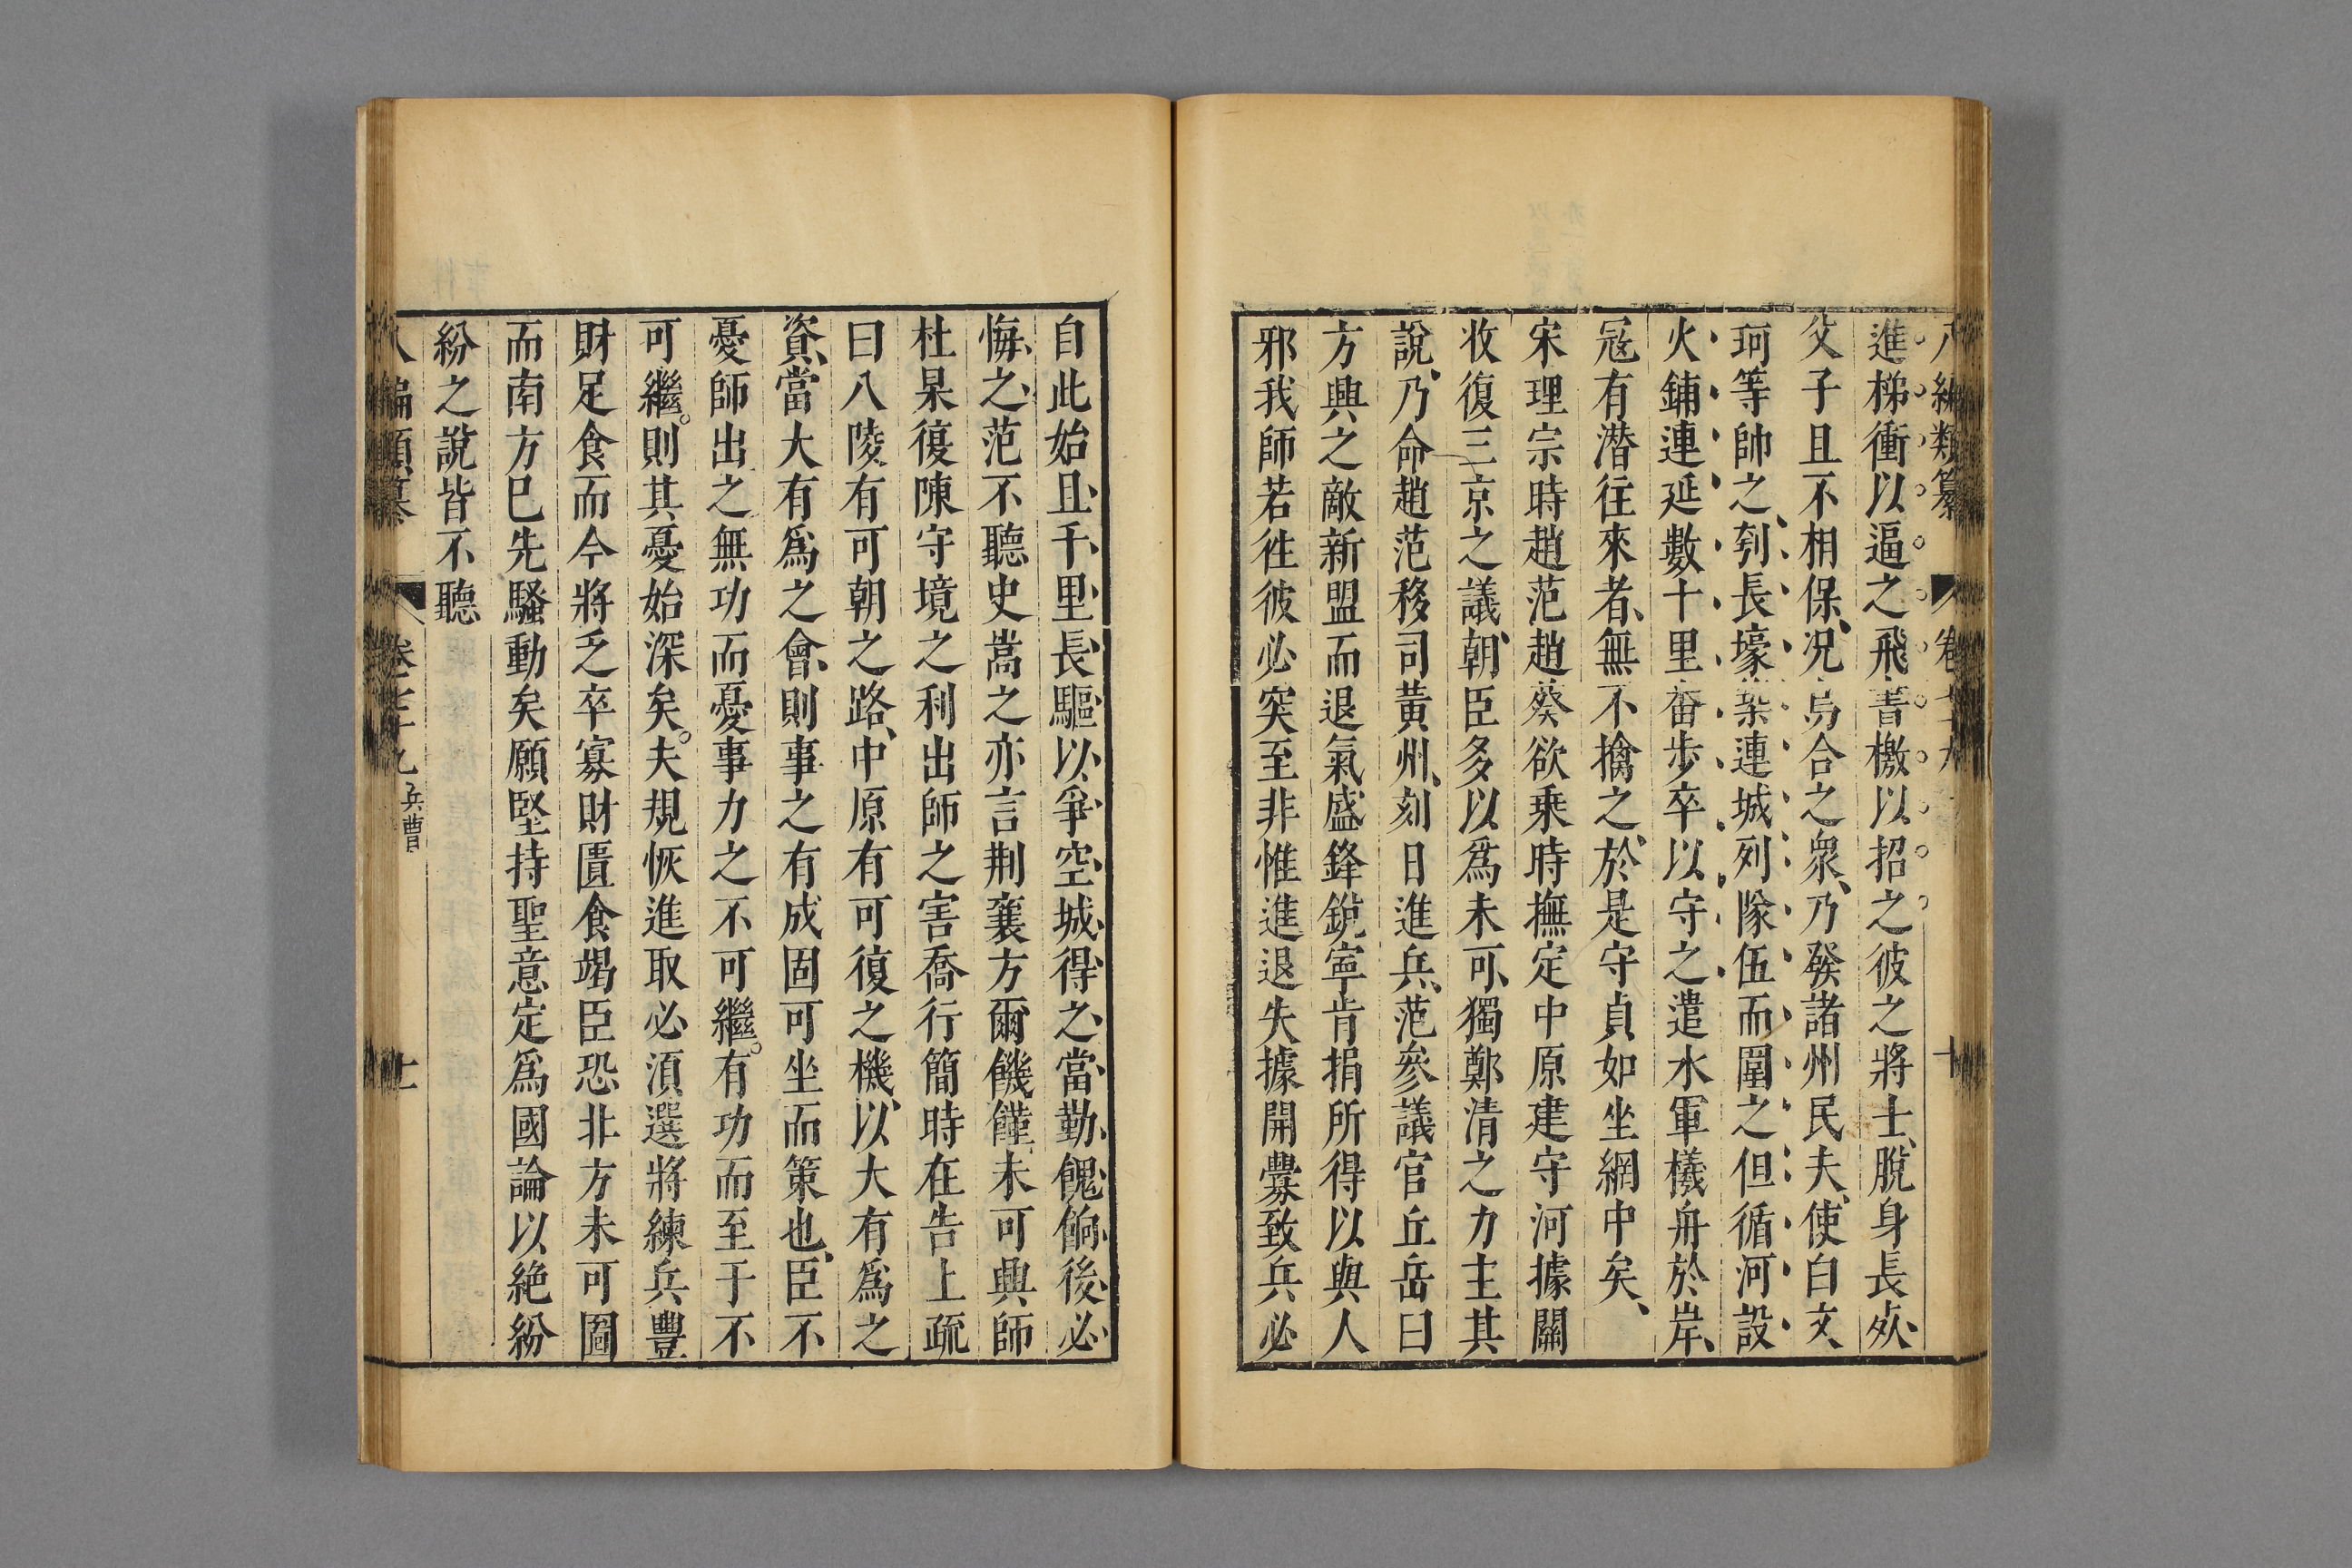 八編類纂 卷七十九 十
進梯衝以逼之飛書檄以招之彼之將士脫身長烣
父子且不相保况烏合之衆乃發諸州民夫使白文
珂等帥之刳長壕築連城列隊伍而圍之但循河設
火鋪連延數十里畨步卒以守之遣水軍檥舟於岸
冦有潜往來者無不擒之於是守貞如坐網中矣
宋理宗時趙范趙葵欲乗時撫定中原建守河據關
收復三京之議朝臣多以爲未可獨鄭清之力主其
說乃命趙范移司黃州刻日進兵范參議官丘岳曰
方興之敵新盟而退氣盛鋒銳寧肯捐所得以與人
邪我師若徃彼必突至非惟進退失據開釁致兵必
自此始且千里長驅以爭空城得之當勤餽餉後必
悔之范不聽史嵩之亦言荆襄方爾饑饉未可興師
杜杲復陳守境之利出師之害喬行簡時在告上疏
曰八陵有可朝之路中原有可復之機以大有爲之
資當大有爲之會則事之有成固可坐而策也臣不
憂師出之無功而憂事力之不可繼有功而至于不
可繼則其憂始深矣夫規恢進取必須選將練兵豐
財足食而今將乏卒寡財匱食竭臣恐非方未可圖
而南方巳先騷動矣願堅持聖意定爲國論以絶紛
紛之說皆不聽
八編類纂 卷七十九 兵曹 十一